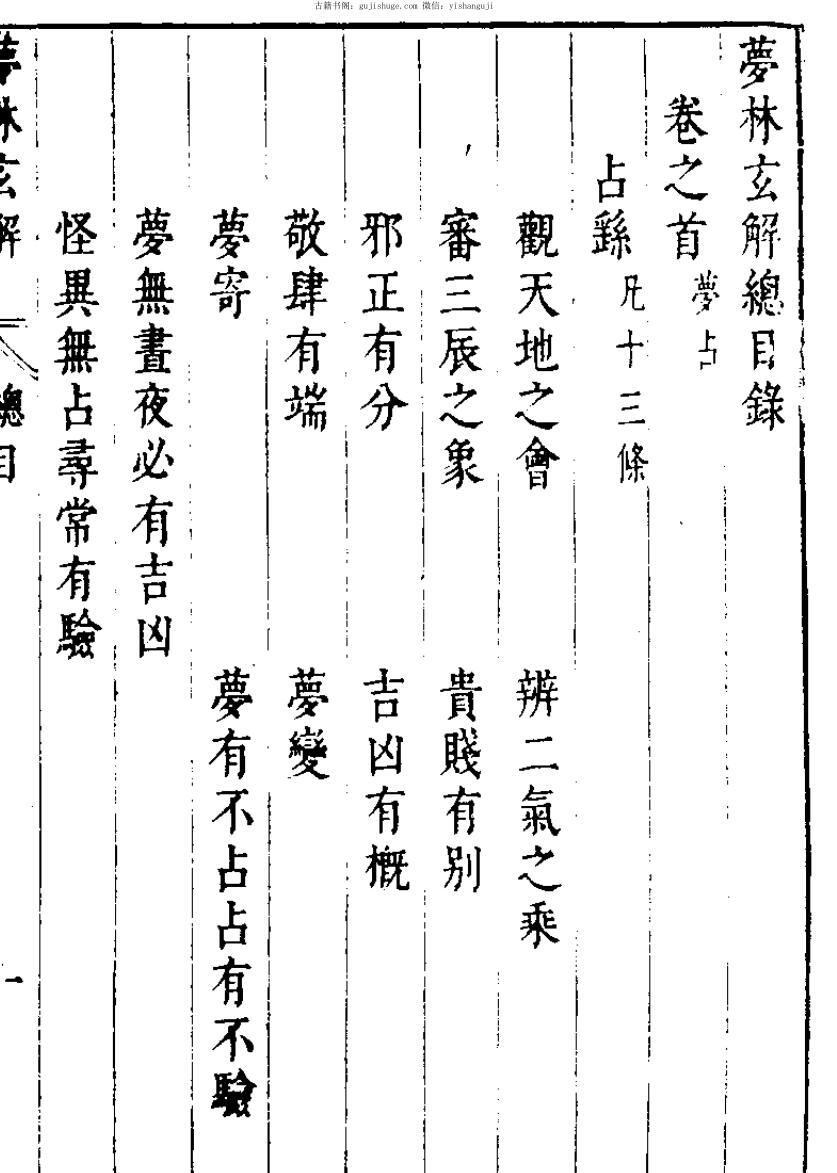 古籍书阁：gujishuge.com 微信：yishanguji
夢林玄解總目錄
卷之首 夢占
占繇 凡十三條
觀天地之會 辨二氣之乘
審三辰之象 貴賤有别
邪正有分 吉凶有概
敬肆有端 夢變
夢寄 夢有不占占有不驗
夢無晝夜必有吉凶
怪異無占尋常有驗
夢林玄解 總目 一